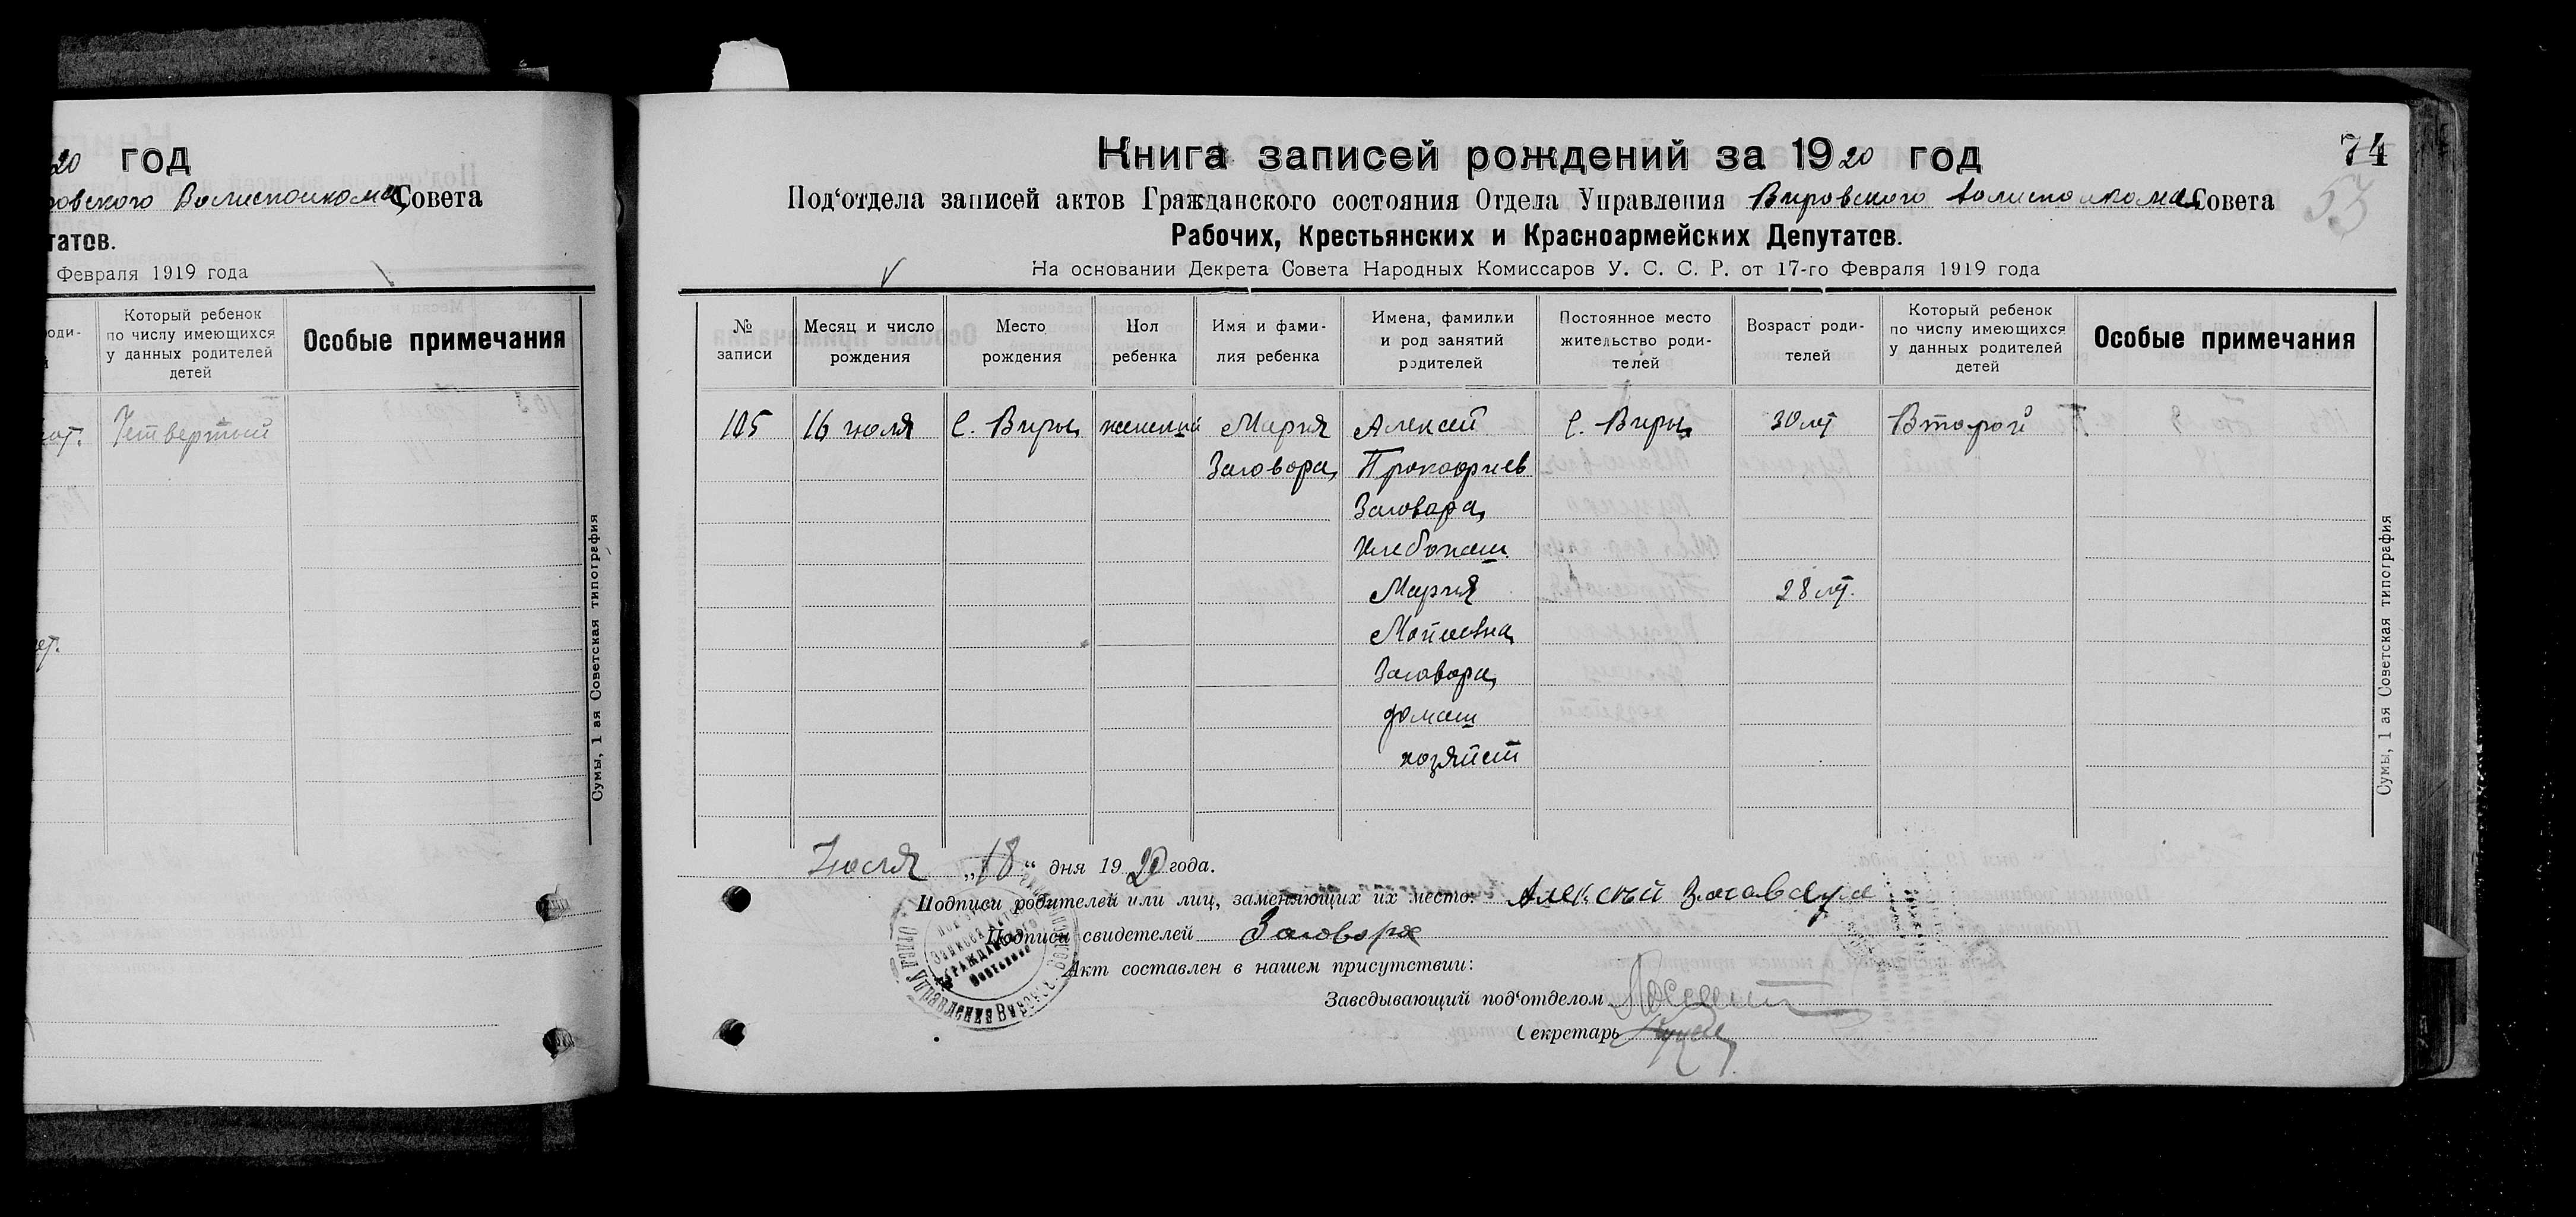 20 год
ровского Волисполкома Совета
татов.
Февраля 1919 года
роди-
Который ребенок
по числу имеющихся
у данных родителей
детей
Особые примечания
Четвертый
Сумы, 1 ая Советская типография
74
53
Книга записей рождений за 1920 год
Под'отдела записей актов Гражданского состояния Отдела Управления Вировского волисполкома Совета
Рабочих, Крестьянских и Красноармейских Депутатов.
На основании Декрета Совета Народных Комиссаров У. С. С. Р. от 17-го Февраля 1919 года
№
записи
Месяц и число
рождения
Место
рождения
Пол
ребенка
Имя и фами-
лия ребенка
Имена, фамилии
и род занятий
родителей
Постоянное место
жительство роди-
телей
Возраст роди-
телей
Который ребенок
по числу имеющихся
у данных родителей
детей
Особые примечания
105 16 июля С. Виры женский Мария Алексей С. Виры 30 лет Второй
Заговора Прокофиев
Заговора
Хлебопаш
Мария 28 лет.
Моисеевна
Заговора
домаш
хозяйст
Июля „18“ дня 1920 года.
Подписи родителей или лиц, заменяющих их место: Алексей
Подписи свидетелей Заговора
Акт составлен в нашем присутствии:
Заведывающий под'отделом
Секретарь
Сумы, 1 ая Советская типография